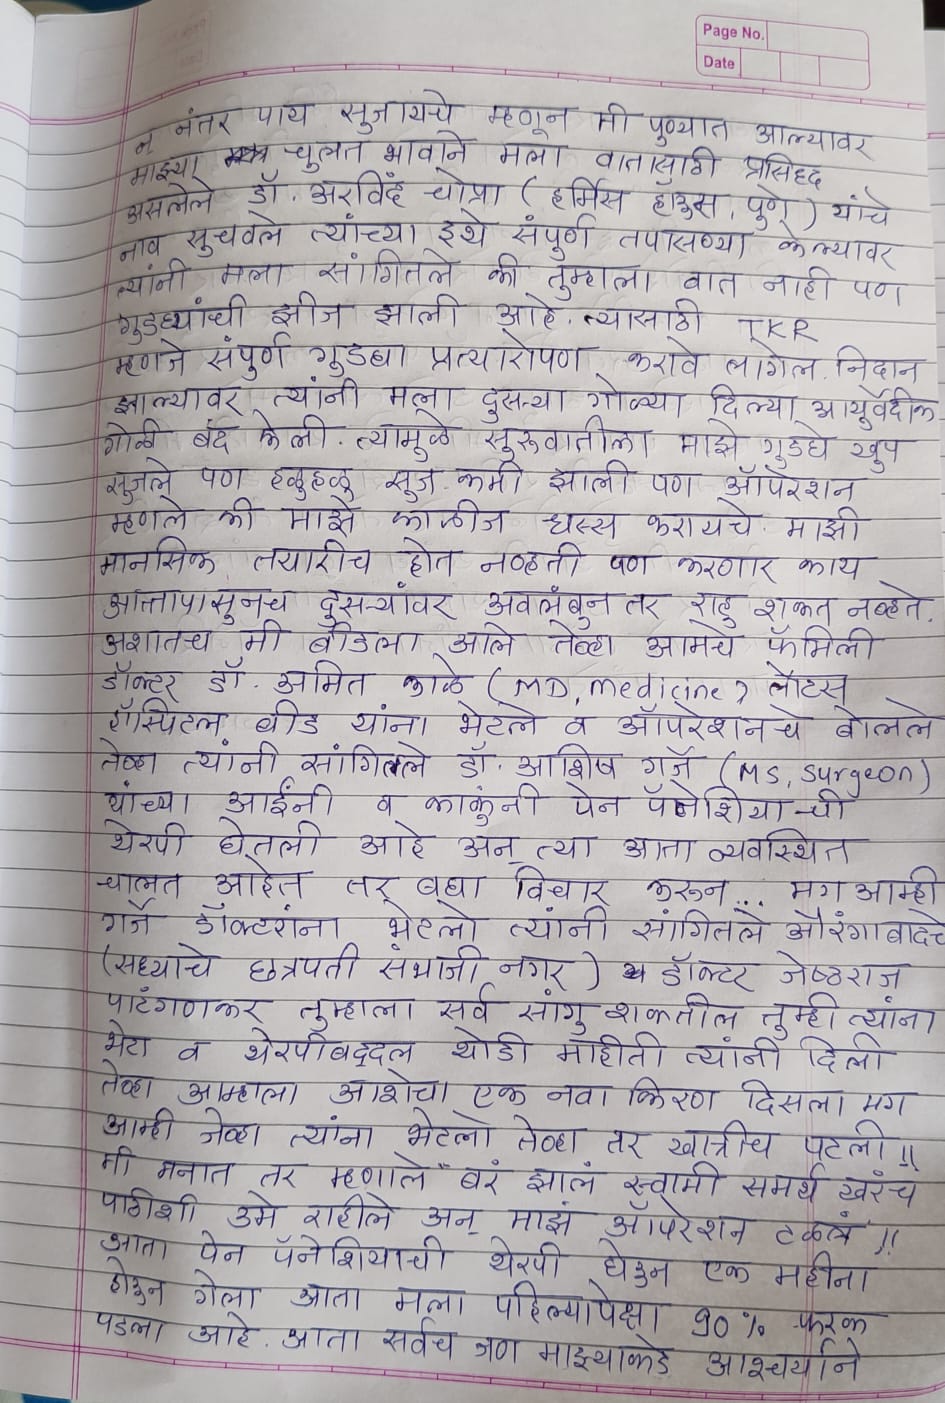 Page No.
Date
न नंतर पाय सुजायचे म्हणून मी पुण्यात आल्यावर
माझ्या चुलत भावाने मला वातासाठी प्रसिध्द
असलेले डॉ. अरविंद चोप्रा ( हर्मिस हॉऊस, पुणे ) यांचे
नाव सुचवले त्यांच्या इथे संपुर्ण तपासण्या केल्यावर
त्यांनी मला सांगितले की तुम्हाला वात नाही पण
गुडघ्यांची झीज झाली आहे. त्यासाठी TKR
म्हणजे संपुर्ण गुडघा प्रत्यारोपण करावे लागेल. निदान
झाल्यावर त्यांनी मला दुसऱ्या गोळ्या दिल्या आयुर्वेदीक
गोळी बंद केली. त्यामुळे सुरुवातीला माझे गुडघे खुप
सुजले पण हळुहळु सुज कमी झाली पण ऑपरेशन
म्हणले की माझे काळीज धस्स करायचे. माझी
मानसिक तयारीच होत नव्हती पण करणार काय
आत्तापासुनच दुसऱ्यांवर अवलंबुन तर राहु शकत नव्हते.
अशातच मी बीडला आले तेव्हा आमचे फॅमिली
डॉक्टर डॉ. अमित काळे ( MD, medicine ) लोटस्
हॉस्पिटल बीड यांना भेटले व ऑपरेशनचे बोलले
तेव्हा त्यांनी सांगितले डॉ. आशिष गर्जे (MS, surgeon)
यांच्या आईंनी व काकुंनी पेन पॅनेशिया ची
थेरपी घेतली आहे अन् त्या आता व्यवस्थित
चालत आहेत तर बघा विचार करून... मग आम्ही
गर्जे डॉक्टरांना भेटलो त्यांनी सांगितले औरंगाबादचे
(सध्याचे छत्रपती संभाजी नगर) डॉक्टर जेष्ठराज
पाटंगणकर तुम्हाला सर्व सांगु शकतील तुम्ही त्यांना
भेटा व थेरपीबद्दल थोडी माहीती त्यांनी दिली
तेव्हा आम्हाला आशेचा एक नवा किरण दिसला मग
आम्ही जेव्हा त्यांना भेटलो तेव्हा तर खात्रीच पटली !!
मी मनात तर म्हणाले "बरं झालं स्वामी समर्थ खरंच
पाठीशी उभे राहीले अन् माझं ऑपरेशन टळलं" !!
आता पेन पॅनेशियाची थेरपी घेऊन एक महीना
होऊन गेला आता मला पहिल्यापेक्षा 90% फरक
पडला आहे. आता सर्वच जण माझ्याकडे आश्चर्याने